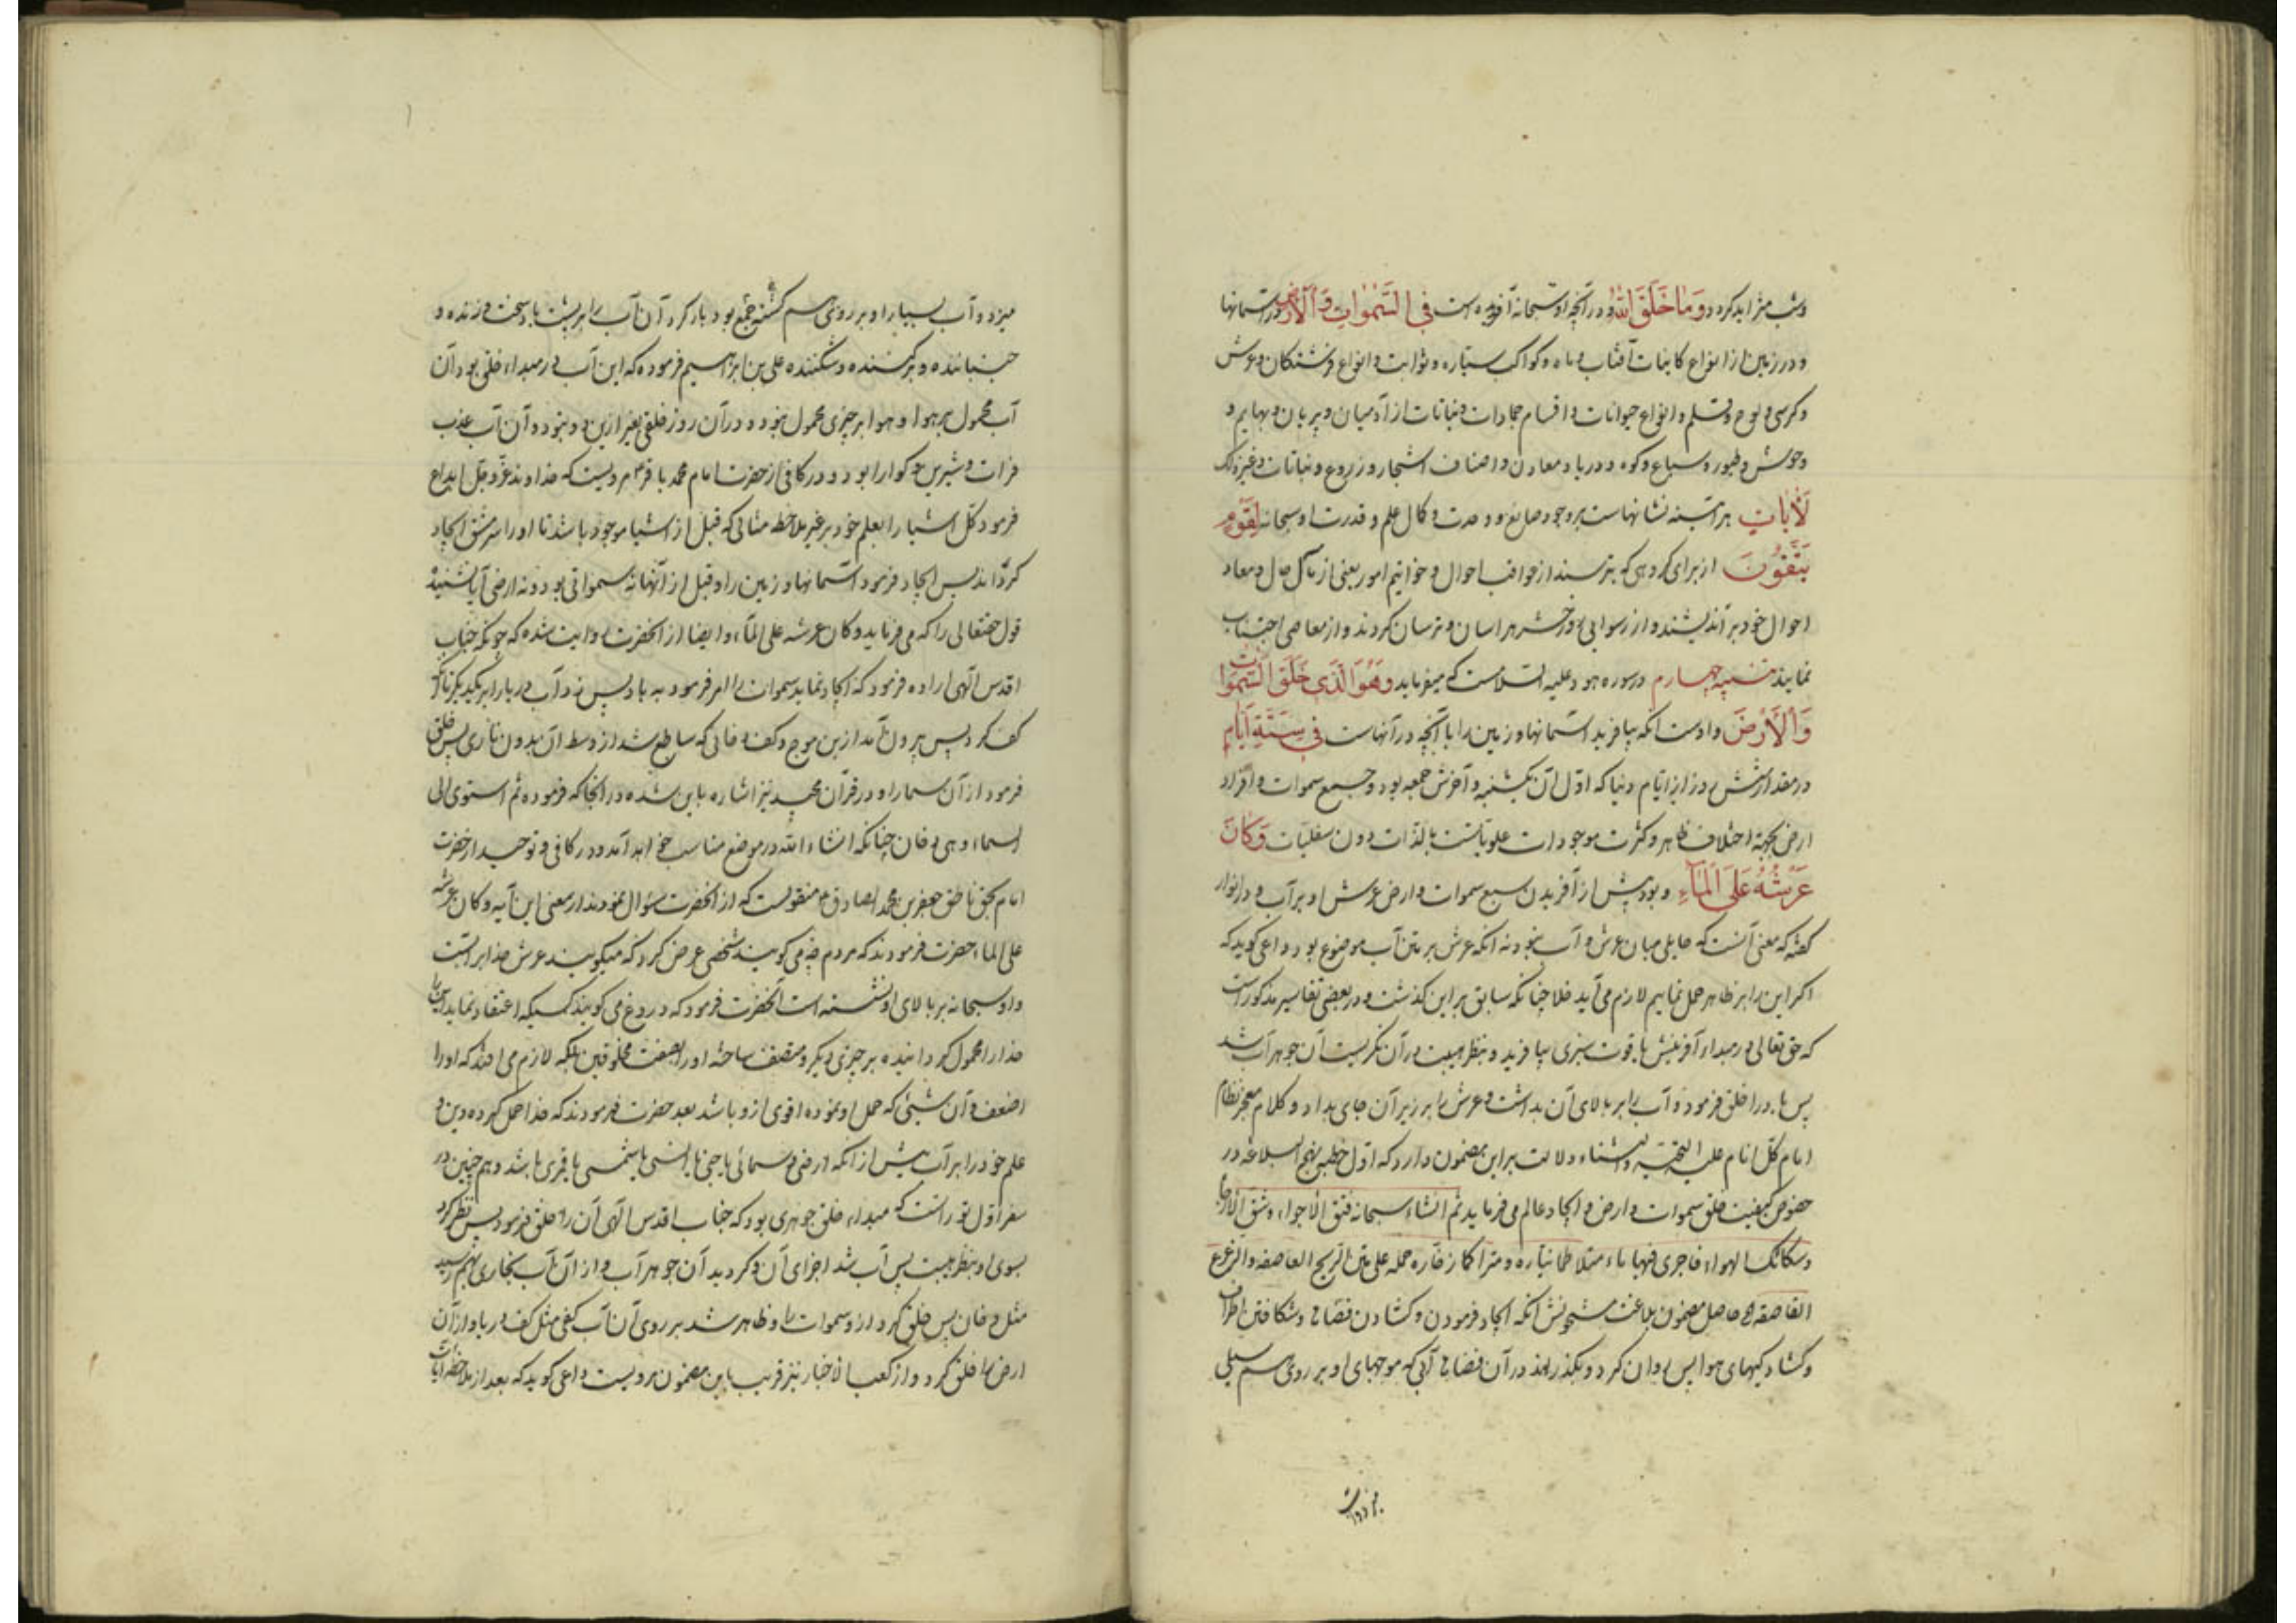 وشب مترایدکردد وَمَا خَلَقَ اللّٰهُ و در آنچه او سبحانه آفریده است فِی السَّمٰوٰاتِ وَ الْاَرْضِ در آسمانها
و در زمین از انواع کاینات آفتاب و ماه و کواکب سیّاره و ثوابت و انواع فرشتکان و عرش
و کرسی و لوح و قلم و انواع حیوانات و اقسام جمادات و نباتات از آدمیان و پریان و بهایم و
وحوش و طیور و سباع و کوه و دریا و معادن و اصناف اشجار و زروع و نباتات و غیر ذلک
لَاٰیٰاتٍ هر آینه نشانهاست بر وجود صانع و وحدت و کمال علم و قدرت او سبحانه لِقَوْمٍ
یَتَّقُونَ از برای کروهی که بترسند از عواقب احوال و خواتیم امور یعنی از مآل حال و معاد
احوال خود بر اندیشند و از رسوایی روز حشر هراسان و ترسان کردند و از معاصی اجتناب
نمایند تنبیه چهارم در سوره هود علیه السلامست که میفرماید وَهُوَ الَّذِی خَلَقَ السَّمٰوٰاتِ
وَالْاَرْضَ و اوست آنکه بیافرید آسمانها و زمین را با آنچه در آنهاست فِی سِتَّةِ اَیّٰامٍ
در مقدار شش روز از ایّام دنیا که اوّل آن یکشنبه و آخرش جمعه بود و جمیع سموات و افراد
ارض بجهة اختلاف ظاهر و کثرت موجودات علویاتست بالذّات دون سفلیّات وَکٰانَ
عَرْشُهُ عَلَی الْمٰآءِ و بود پیش از آفریدن سبع سموات و ارض عرش او بر آب و در انوار
کفته که معنی آنست که حایلی میان عرش و آب نبود نه آنکه عرش بر متن آب موضوع بود داعی کوید که
اکر این را بر ظاهر حمل نماییم لازم می آید خلا چنانکه سابق بر این کذشت و در بعضی تفاسیر مذکور است
که حق تعالی در مبداء آفرینش یاقوت سبزی بیافرید و بنظر هیبت در آن نکریست آن جوهر آب شد
پس باد را خلق فرمود و آب را بر بالای آن بداشت و عرش را بر زبر آن جای بداد و کلام معجز نظام
امام کلّ انام علیه التحیّه والثناء دلالت بر این مضمون دارد که اوّل خطبه نهج البلاغه در
خصوص کیفیت خلق سموات و ارض و ایجاد عالم می فرماید ثم انشاء سبحانه فتق الاجواء و شق الارجاء
و سکائک الهواء فاجری فیها ماء متلاطما تیاره و متراکما زخاره حمله علی متن الریح العاصفه و الزعزع
القاصفه و حاصل مضمون بلاغت مشحونش آنکه ایجاد فرمودن و کشادن فضاء و شکافتن اطراف
و کشادکیهای هوا پس روان کرد و بکذرانید در آن فضاء آبی که موجهای او بر روی هم سیلی
میزد و آب بسیار او بر روی هم کشته جمع بود بار کرد آن آب را بر پشت باد سخت وزنده و
جنباننده و بر کننده و شکننده علی بن ابراهیم فرموده که این آب در مبداء خلق بود آن
آب محمول بر هوا و هوا بر چیزی محمول نبود و در آن روز خلقی بغیر از این دو نبود و آن آب عذب
فرات و شیرین و کوارا بود و در کافی از حضرت امام محمد باقر ع مرویست که خداوند عزّ و جلّ ابداع
فرمود کلّ اشیا را بعلم خود بر غیر ملاحظه مثالی که قبل از اشیا موجود باشد تا او را سر مشق ایجاد
کرداند پس ایجاد فرمود آسمانها و زمین را و قبل از آنها نه سمواتی بود و نه ارضی آیا نشنیده
قول حقتعالی را که می فرماید و کان عرشه علی الماء و ایضا از آنحضرت روایت شده که چونکه جناب
اقدس الهی اراده فرمود که ایجاد نماید سموات را امر فرمود به باد پس زد آب دریا را بریکدیکر تا آنکه
کف کرد پس بیرون آمد از بین موج و کف دخانی که ساطع شد از وسط آن بدون ناری پس خلق
فرمود از آن سما را و در قرآن مجید نیز اشاره باین شده در آنجا که فرموده ثم استوی الی
السماء و هی دخان چنانکه انشاء الله در موضع مناسب خواهد آمد و در کافی و توحید از حضرت
امام بحق ناطق جعفر بن محمد الصادق ع منقولست که از آنحضرت سؤال نمودند از معنی این آیه و کان عرشه
علی الماء حضرت فرمودند که مردم چه می کویند شخصی عرض کرد که میکویند عرش خدا بر آبست
و او سبحانه بر بالای او نشسته است آنحضرت فرمود که دروغ می کویند کسیکه اعتقاد نماید این را
خدا را محمول کردانیده بر چیزی دیکر و متصف ساخته او را بصفت مخلوقین بلکه لازم می افتد که او را
اضعف و آن شیئی که حمل او نموده اقوی از او باشد بعد حضرت فرمودند که خدا حمل کرده دین و
علم خود را بر آب پیش از آنکه ارضی و سمائی یا جنی یا انسی یا شمسی یا قمری باشد و هم چنین در
سفر اوّل توراتست که مبداء خلق جوهری بود که جناب اقدس الهی آن را خلق فرمود پس نظر کرد
بسوی او بنظر هیبت پس آب شد اجزای آن و کردید آن جوهر آب و از آن آب بخاری بهم رسید
مثل دخان پس خلق کرد از او سموات را و ظاهر شد بر روی آن آب کفی مثل کف دریا و از آن
ارض را خلق کرد و از کعب الاخبار نیز قریب باین مضمون مرویست داعی کوید که بعد از ملاحظه آیات
میزد و آب